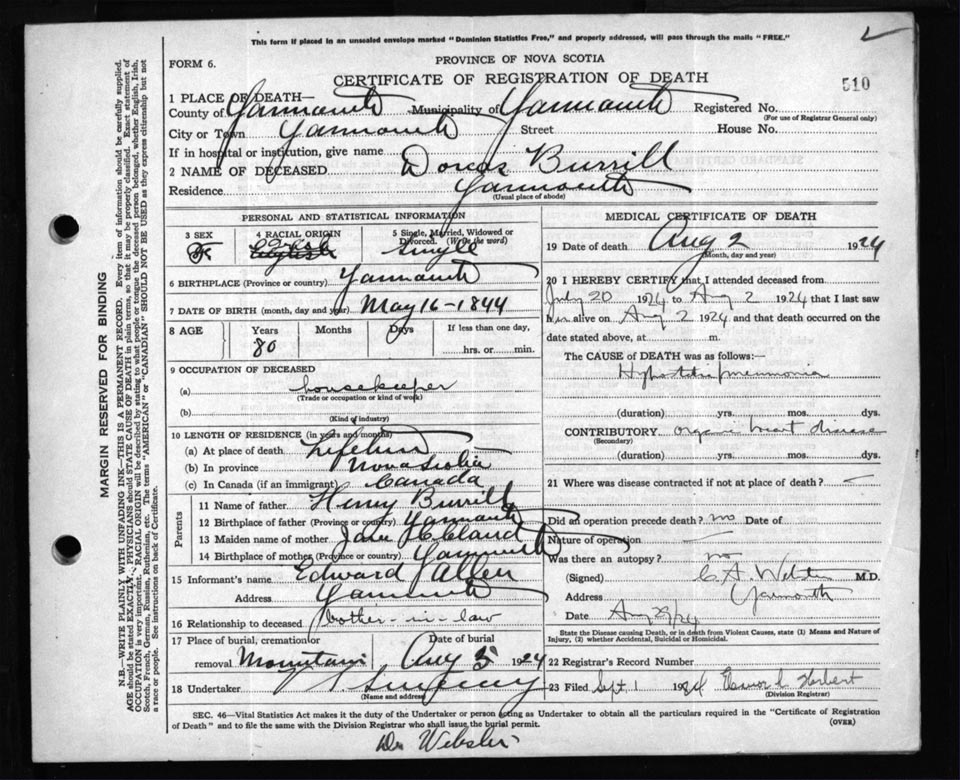 This form if placed in an unsealed envelope marked "Dominion Statistics Free," and properly addressed, will pass through the mails "FREE."
FORM 6.
PROVINCE OF NOVA SCOTIA
CERTIFICATE OF REGISTRATION OF DEATH
510
1 PLACE OF DEATH—
County of Yarmouth Municipality of Yarmouth Registered No.
(For use of Registrar General only)
City or Town Yarmouth Street House No.
If in hospital or institution, give name
2 NAME OF DECEASED Dorcas Burrill
Residence Yarmouth
(Usual place of abode)
PERSONAL AND STATISTICAL INFORMATION
3 SEX F
4 RACIAL ORIGIN English
5 Single, Married, Widowed or Divorced. (Write the word) Single
6 BIRTHPLACE (Province or country) Yarmouth
7 DATE OF BIRTH (month, day and year) May 16-1844
8 AGE Years Months Days If less than one day,
80 hrs. or min.
9 OCCUPATION OF DECEASED
(a) housekeeper
(Trade or occupation or kind of work)
(b)
(Kind of industry)
10 LENGTH OF RESIDENCE (in years and months)
(a) At place of death Lifetime
(b) In province Nova Scotia
(c) In Canada (if an immigrant) Canada
Parents
11 Name of father Henry Burrill
12 Birthplace of father (Province or country) Yarmouth
13 Maiden name of mother Jane
14 Birthplace of mother (Province or country) Yarmouth
15 Informant's name Edward Allen
Address Yarmouth
16 Relationship to deceased bother-in-law
17 Place of burial, cremation or removal Mountain
Date of burial Aug 5 1924
18 Undertaker Sweeney
(Name and address)
MEDICAL CERTIFICATE OF DEATH
19 Date of death Aug 2 1924
(Month, day and year)
20 I HEREBY CERTIFY that I attended deceased from
July 20 1924 to Aug 2 1924 that I last saw
her alive on Aug 2 1924 and that death occurred on the
date stated above, at m.
The CAUSE OF DEATH was as follows:—
Hypostatic pneumonia
(duration) yrs. mos. dys.
CONTRIBUTORY organic heart disease
(Secondary)
(duration) yrs. mos. dys.
21 Where was disease contracted if not at place of death? —
Did an operation precede death? no Date of
Nature of operation —
Was there an autopsy? no
(Signed) C A Webster M.D.
Address Yarmouth
Date Aug 29/24
State the Disease causing Death, or in death from Violent Causes, state (1) Means and Nature of
Injury, (2) whether Accidental, Suicidal or Homicidal.
22 Registrar's Record Number
23 Filed Sept. 1 1924 Herbert
(Division Registrar)
SEC. 46—Vital Statistics Act makes it the duty of the Undertaker or person acting as Undertaker to obtain all the particulars required in the "Certificate of Registration
of Death" and to file the same with the Division Registrar who shall issue the burial permit. (OVER)
Dr Webster
MARGIN RESERVED FOR BINDING
N.B.—WRITE PLAINLY WITH UNFADING INK—THIS IS A PERMANENT RECORD. Every item of information should be carefully supplied.
AGE should be stated EXACTLY. PHYSICIANS should STATE CAUSE OF DEATH in plain terms, so that it may be properly classified. Exact statement of
OCCUPATION is very important. RACIAL ORIGIN will be described by stating to what people or tongue the deceased person belonged, whether English, Irish,
Scotch, French, German, Russian, Ruthenian, etc. The terms "AMERICAN" or "CANADIAN" SHOULD NOT BE USED as they express citizenship but not
a race or people. See instructions on back of Certificate.